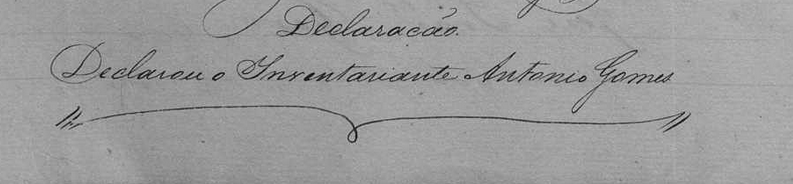 Declaracão
Declarou o Inventariante Antonio Gomes